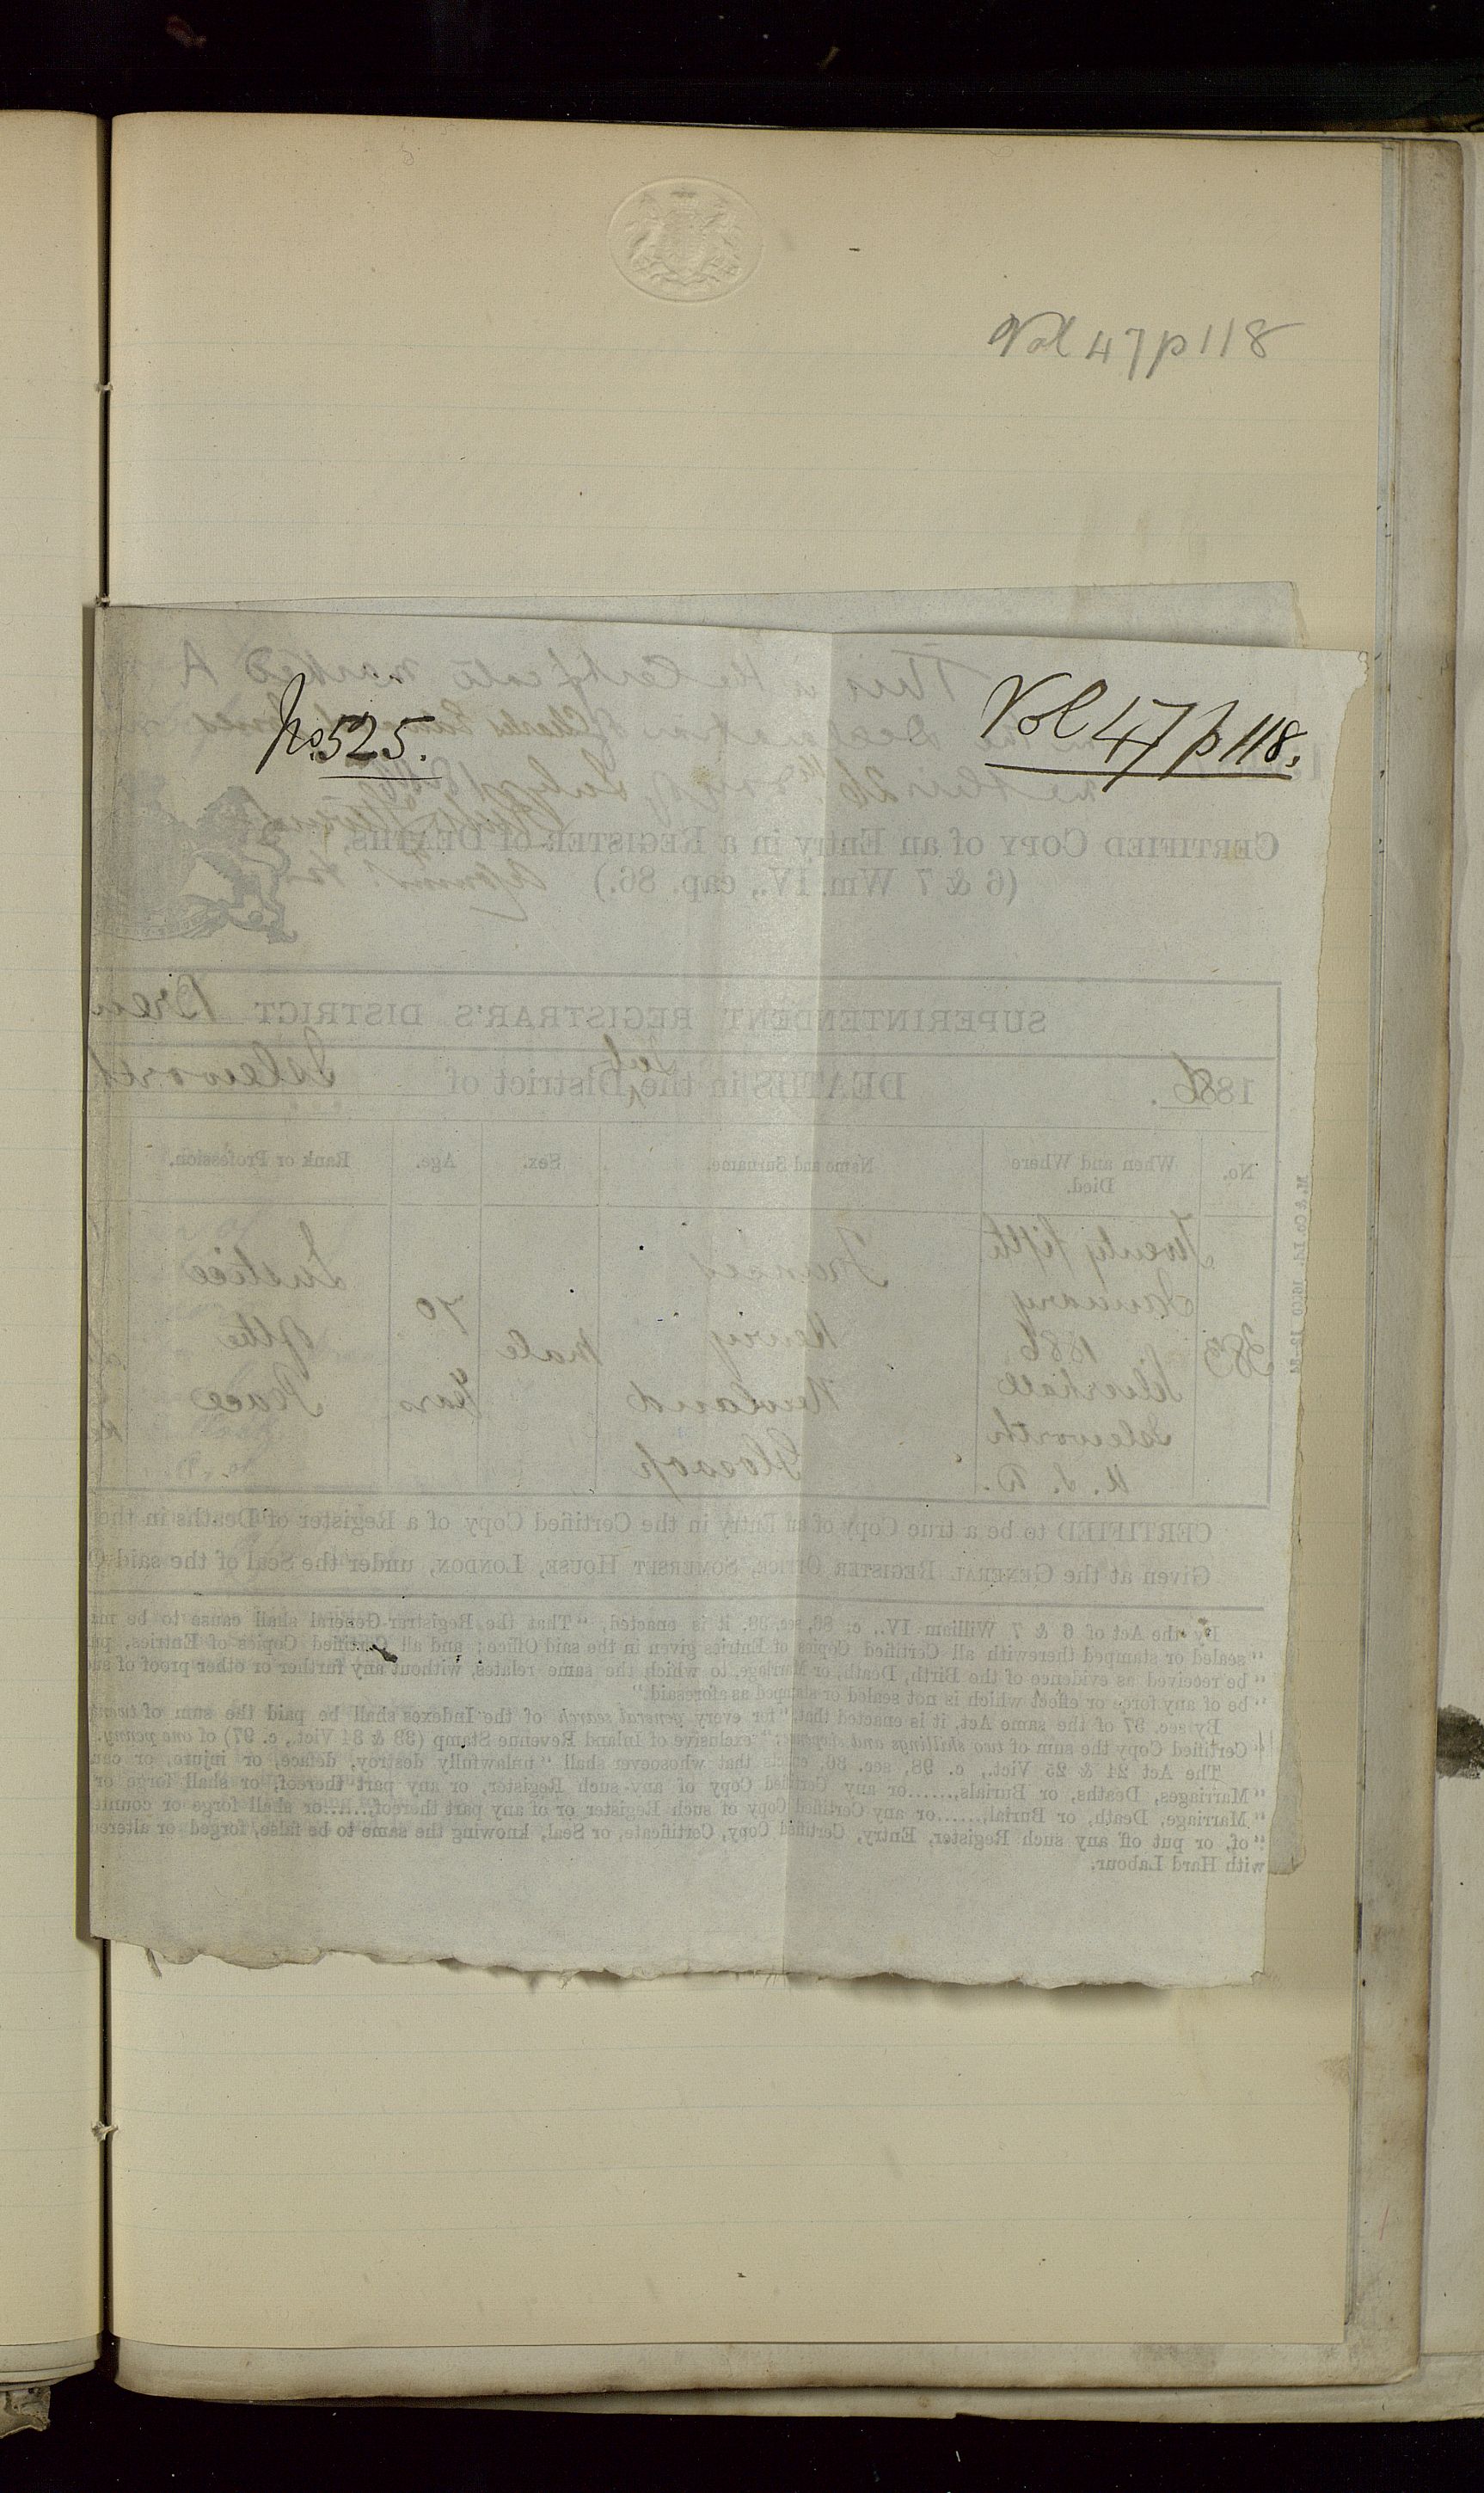 Vol 47 p 118
No. 525.
Vol 47 p 118.
This is the Certificate marked A
CERTIFIED COPY of an Entry in a REGISTER OF DEATHS.
(6 & 7 Wm. IV., cap. 86.)
SUPERINTENDENT REGISTRAR'S DISTRICT
1886. DEATHS in the Sub District of Isleworth
No. When and Where Died. Name and Surname. Sex. Age. Rank or Profession.
383 Twenty fifth January 1886 Silverhall Isleworth U.S.D. Francis Henry Newland Glossop Male 70 Years Justice of the Peace
CERTIFIED to be a true Copy of an Entry in the Certified Copy of a Register of Deaths in the
Given at the GENERAL REGISTER OFFICE, SOMERSET HOUSE, LONDON, under the Seal of the said
By the Act of 6 & 7 William IV., c. 86, sec. 38, it is enacted, "That the Registrar-General shall cause to be
"sealed or stamped therewith all Certified Copies of Entries given in the said Office; and all Certified Copies of Entries,
"be received as evidence of the Birth, Death, or Marriage, to which the same relates, without any further or other proof of
"be of any force or effect which is not sealed or stamped as aforesaid."
By sec. 37 of the same Act, it is enacted that "for every general search of the Indexes shall be paid the sum of
"Certified Copy the sum of two shillings and sixpence," exclusive of Inland Revenue Stamp (33 & 34 Vict., c. 97) of one penny.
The Act 24 & 25 Vict., c. 98, sec. 36, enacts that whosoever shall "unlawfully destroy, deface, or injure, or
"Marriages, Deaths, or Burials,......or any Certified Copy of any such Register, or any part thereof, or shall forge or
"Marriage, Death, or Burial,......or any Certified Copy of such Register, or of any part thereof,......or shall forge or
"of, or put off any such Register, Entry, Certified Copy, Certificate, or Seal, knowing the same to be false, forged or altered
with Hard Labour.